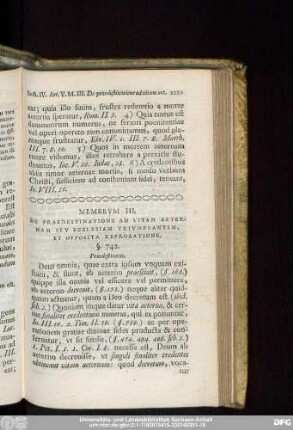 Sect. IV. Art. V. M. III. De praedestinatione ad vitam aet. 1121
tur; quia illo finito, frustra redemtio a morte
aeterna speratur, Rom. II. 5. 4) Quia tantus est
dammatorum numerus, ne seriori poenitentiae
vel operi operato rem committamus, quod ple-
rosque frustratur, Ebr. IV. 1. III. 7. 8. Matth.
III. 7. 8. 10. 5) Quos in mortem aeternam
ruere videmus, illos retrahere a pernicie stu-
deamus, Iac. V. 20. Iudae, 23. 6) A credentibus
absit timor aeternae mortis, si modo verbum
Christi, suscipiant ad constantiam fidei, teneant,
Io. VIII. 51.
MEMBRVM III.
DE PRAEDESTINATIONE AD VITAM AETER-
NAM SEV ECCLESIAM TRIVMPHANTEM,
ET OPPOSITA REPROBATIONE.
§. 742.
Praedestinatio.
Deus omnia, quae extra ipsum vnquam exi-
stunt, & fiunt, ab aeterno praesciuit,
quippe illa omnia vel efficere vel permittere,
ab aeterno decreuit, neque aliter quid-
quam actuatur, quam a Deo decretum est
Quoniam itaque datur vita aeterna, & cer-
tus fidelium eodem numerus, qui ea potiuntur,
Io. III. 16. 2. Tim. II. 19. ac per ope-
rationem gratiae diuinae fides producta & con-
seruatur, vt sit finalis,
1. Pet. I. 5. 1. Cor. I. 8. necesse est, Deum ab
aeterno decreuisse, vt singuli finaliter credentes
obtineant vitam aeternam: quod decretum, voca-
tur
Universitäts- und Landesbibliothek Sachsen-Anhalt